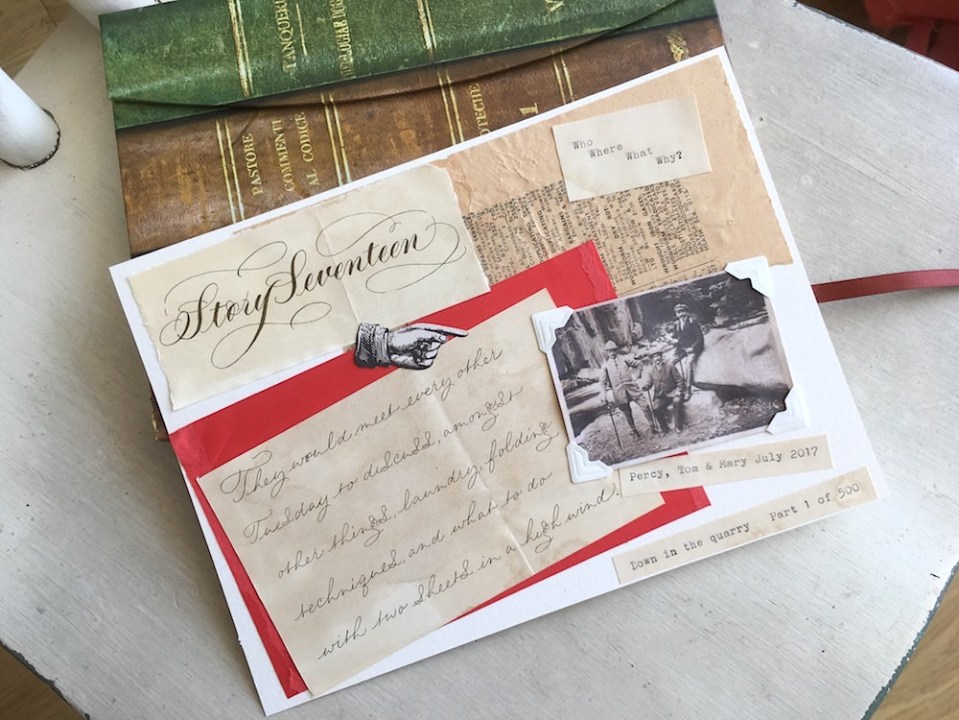 TANQUERE
PASTORE
COMMENTI
AL CODICE
1
Who
Where
What
Why?
Story Seventeen
They would meet every other
Tuesday to discuss, amongst
other things, laundry folding
techniques, and what to do
with two sheets in a high wind.
Percy, Tom & Mary July 2017
Down in the quarry Part 1 of 500